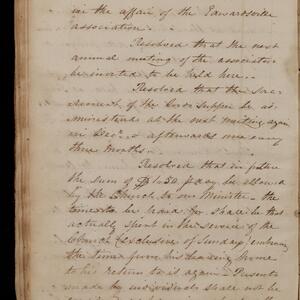 in the affair of the Edwardsville
association.
Resolved that the next
annual meeting of the association
be invited to be held here.
Resolved that the Sac-
rament of the Lords Supper be ad-
ministered at the next meeting again
in Decr & afterwards once every
three months.
Resolved that in future
the sum of $1.50 p day be allowed
by the Church to our Minister - the
time to be paid for shall be that
actually spent in the service of the
Church (Exclusive of Sunday) embracing
the time from his leaving home
to his return to it again - Presents
made by individuals shall not be